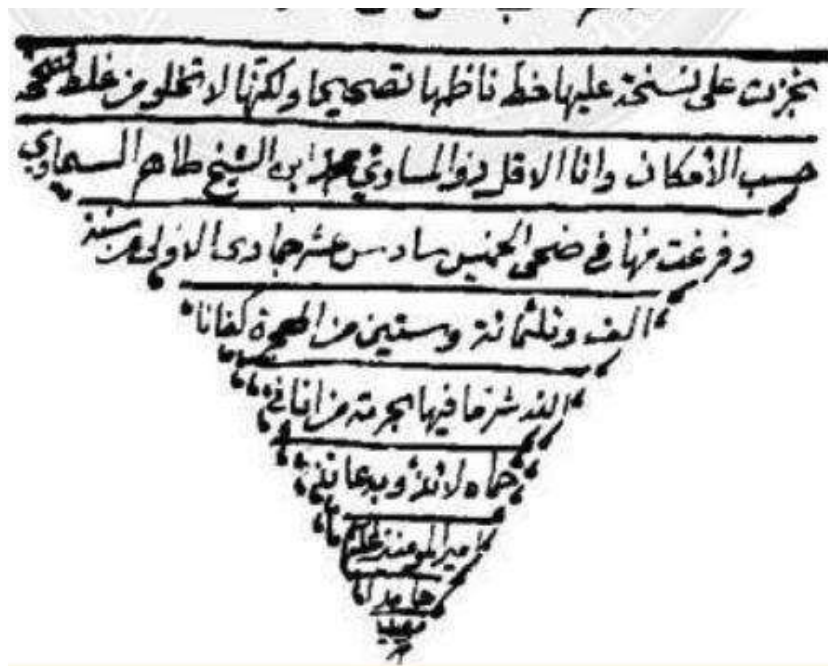 نجزت على نسخة عليها خط ناظمها تصحيحا ولكنها لا تخلو من غلط فصححتها
حسب الأمكان وانا الاقل ذو المساوي محمد ابن الشيخ طاهر السماوي
وفرغت منها في ضحى الخميس سادس عشر جمادى الاولى من سنة
الف وثلثمائة وستين من الهجرة كفانا
الله شر ما فيها بحرمة من انا في
حماه لائذ وبدعائه
امير المؤمنين
حامدا